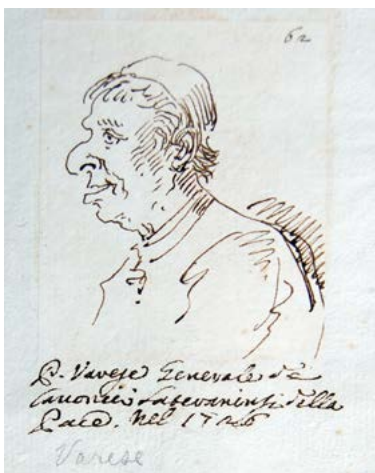 62
P. Varese Generale de
Canonici Lateranensi della
Pace. Nel 1726
Varese